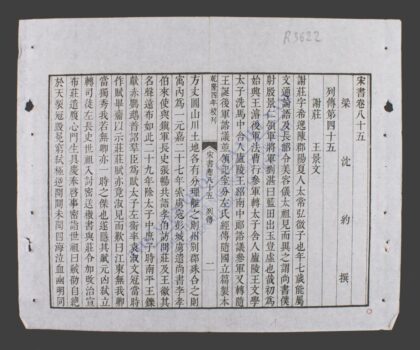 R3622
宋書卷八十五
梁沈約撰
列傳第四十五
謝莊 王景文
謝莊字希逸陳郡陽夏人太常弘微子也年七歲能屬
文通論語及長韶令美容儀太祖見而異之謂尚書僕
射殷景仁領軍將軍劉湛曰藍田出玉豈虛也哉初為
始興王濬後軍法曹行參軍轉太子舍人廬陵王文學
太子洗馬中舍人廬陵王紹南中郎諮議參軍又轉隨
王誕後軍諮議並領記室分左氏經傳隨國立篇製木
乾隆四年校刊
宋書卷八十五 列傳
一
方丈圖山川土地各有分理離之則州別郡殊合之則
寓內為一元嘉二十七年索虜寇彭城虜遣尚書李孝
伯來使與鎮軍長史張暢共語孝伯訪問莊及王徽其
名聲遠布如此二十九年除太子中庶子時南平王鑠
獻赤鸚鵡普詔羣臣為賦太子左衛率袁淑文冠當時
作賦畢齎以示莊莊賦亦竟淑見而歎曰江東無我卿
當獨秀我若無卿亦一時之傑也遂隱其賦元凶弒立
轉司徒左長史世祖入討密送檄書與莊令加改治宣
布莊遣腹心門生具慶奉啟事密詣世祖曰賊劭自絕
於天裂冠毀冕窮弒極逆開闢未聞四海泣血幽明同